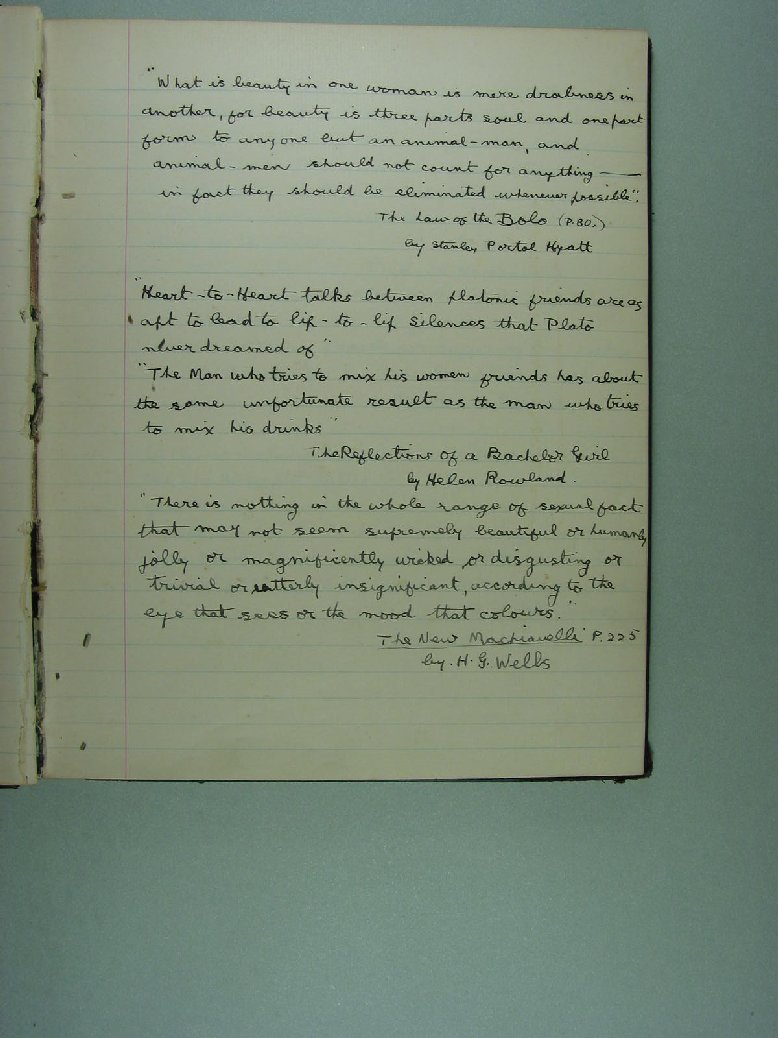 "What is beauty in one woman is mere drabness in
another, for beauty is three parts soul and one part
form to any one but an animal-man, and
animal-men should not count for anything —
in fact they should be eliminated whenever possible".
The Law of the Bolo (P.80.)
by Stanley Portal Hyatt
"Heart-to-Heart talks between platonic friends are as
apt to lead to lip-to-lip silences that Plato
never dreamed of"
"The Man who tries to mix his women friends has about
the same unfortunate result as the man who tries
to mix his drinks"
The Reflections of a Bachelor Girl
by Helen Rowland.
"There is nothing in the whole range of sexual fact
that may not seem supremely beautiful or humanly
jolly or magnificently wicked or disgusting or
trivial or utterly insignificant, according to the
eye that sees or the mood that colours."
The New Machiavelli P.225
by. H. G. Wells